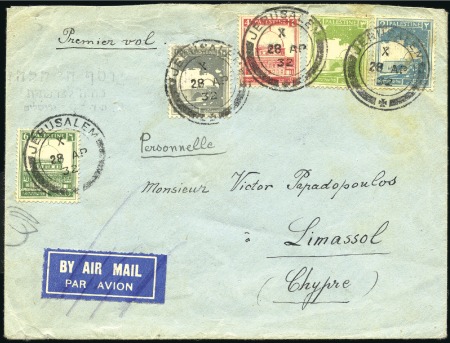 Premier vol.
PALESTINE
PALESTINE
PALESTINE
JERUSALEM
X
28 AP
32
JERUSALEM
X
28 AP
32
JERUSALEM
X
28 AP
32
JERUSALEM
X
28 AP
32
Personnelle
Monsieur Victor Papadopoulos
à
Limassol
(Chypre)
BY AIR MAIL
PAR AVION